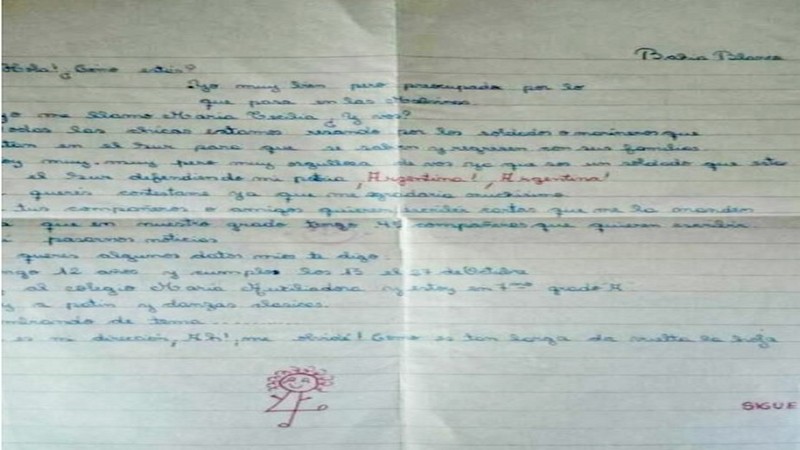 Bahia Blanca
Hola! ¿Cómo estás?
Yo muy bien pero preocupada por lo
que pasa en las Malvinas
yo me llamo Maria Cecilia ¿Y vos?
todas las chicas estamos rezando por los soldados o marineros que
están en el Sur para que se salven y regresen con sus familias.
oy muy, muy pero muy orgullosa de vos ya que sos un soldado que esta
el Sur defendiendo mi patria ¡Argentina! ¡Argentina!
querés contestame ya que me agradaria muchísimo
tus compañeros o amigos quieren escribir cartas que me la manden
que en nuestro grado tengo compañeras que quieren escribir
pasarnos noticias
queres algunos datos mios te digo
ngo 12 años y cumplo los 13 el 27 de Octubre
al colegio Maria Auxiliadora y estoy en 7mo grado A
y a patin y danzas clasicas.
mbiando de tema ............
es mi dirección, ¡Ah!, me olvidé! Como es tan larga da vuelta la hoja
SIGUE